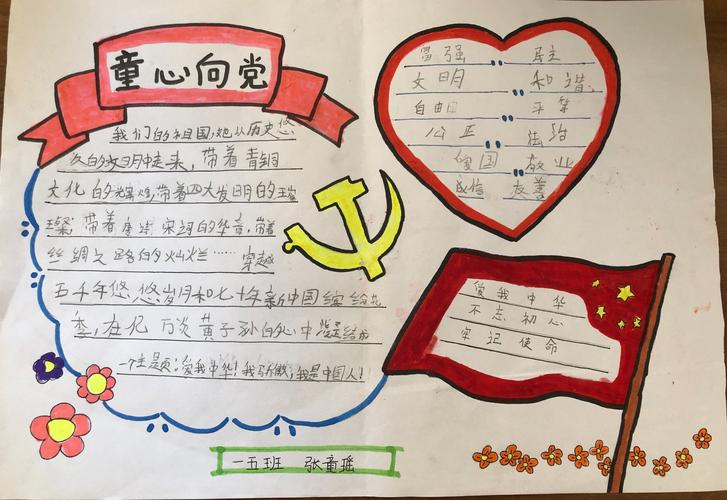 童心向党
我们的祖国,她从历史悠
久的文明中走来,带着青铜
文化的辉煌,带着四大发明的璀
璨,带着唐诗宋词的华章,带着
丝绸之路的灿烂……穿越
五千年悠悠岁月和七十年新中国缤纷花
季,在亿万炎黄子孙的心中凝结成
一个主题:爱我中华!我骄傲,我是中国人!
富强 民主
文明 和谐
自由 平等
公正 法治
爱国 敬业
诚信 友善
爱我中华
不忘初心
牢记使命
一五班 张童瑶